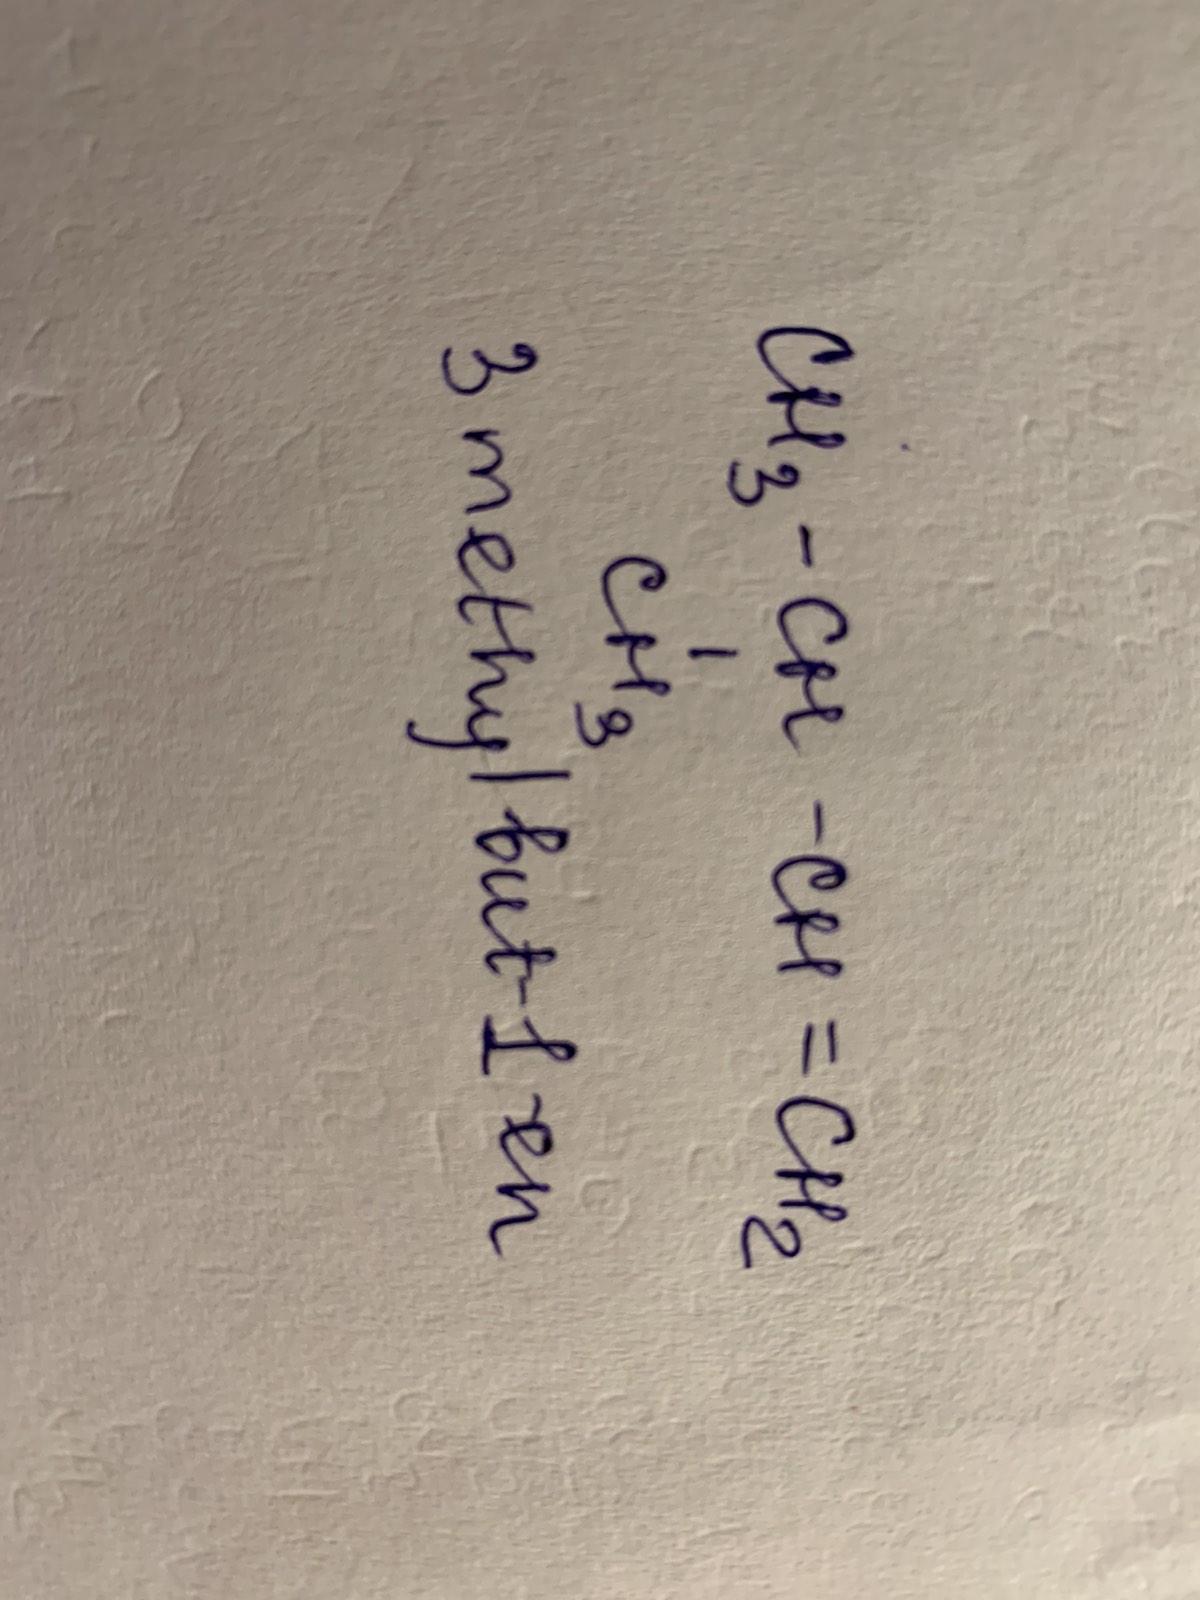 CH3 - CH - CH = CH2
|
CH3
3 methyl but-1-en